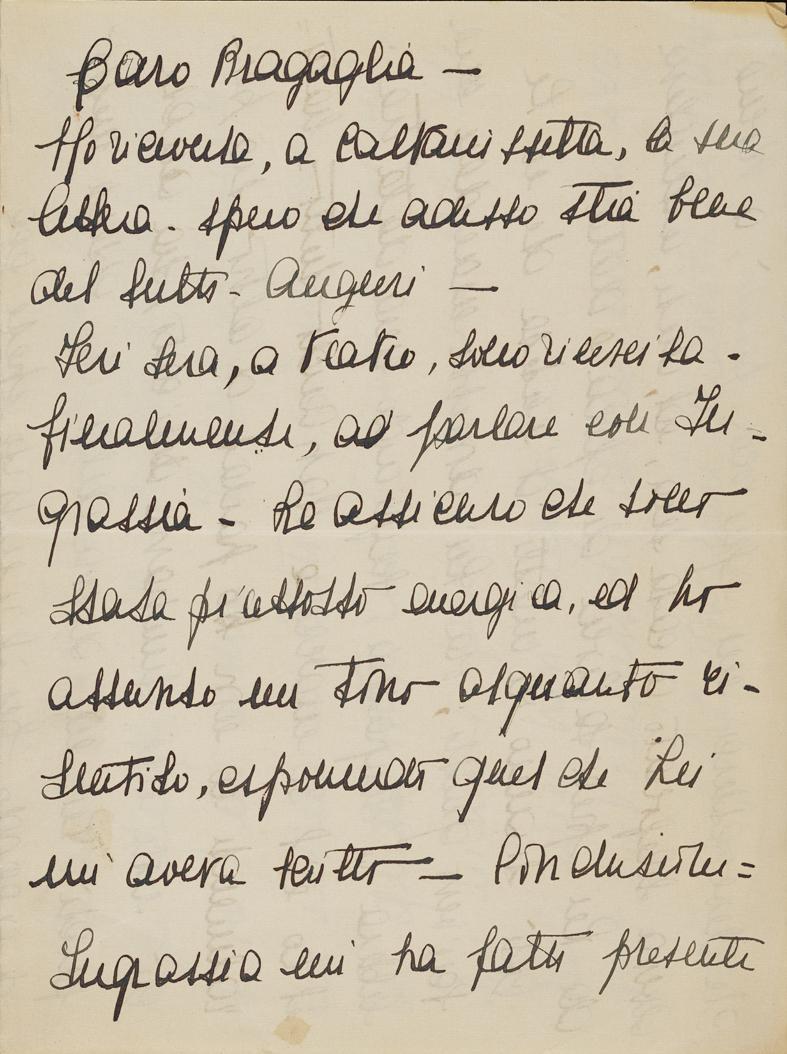 Caro Bragaglia —
Ho ricevuta, a Caltanissetta, la sua
lettera. Spero che adesso stia bene
del tutto - Auguri —
Ieri sera, a teatro, sono riuscita.
finalmente, ad parlare con In-
grassia - Le assicuro che sono
stata piuttosto energica, ed ho
assunto un tono alquanto ri-
sentito, esponendo quel che Lei
mi aveva scritto — Conclusione=
Ingrassia mi ha fatto presente